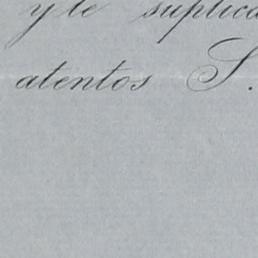 y le suplica
atentos S.